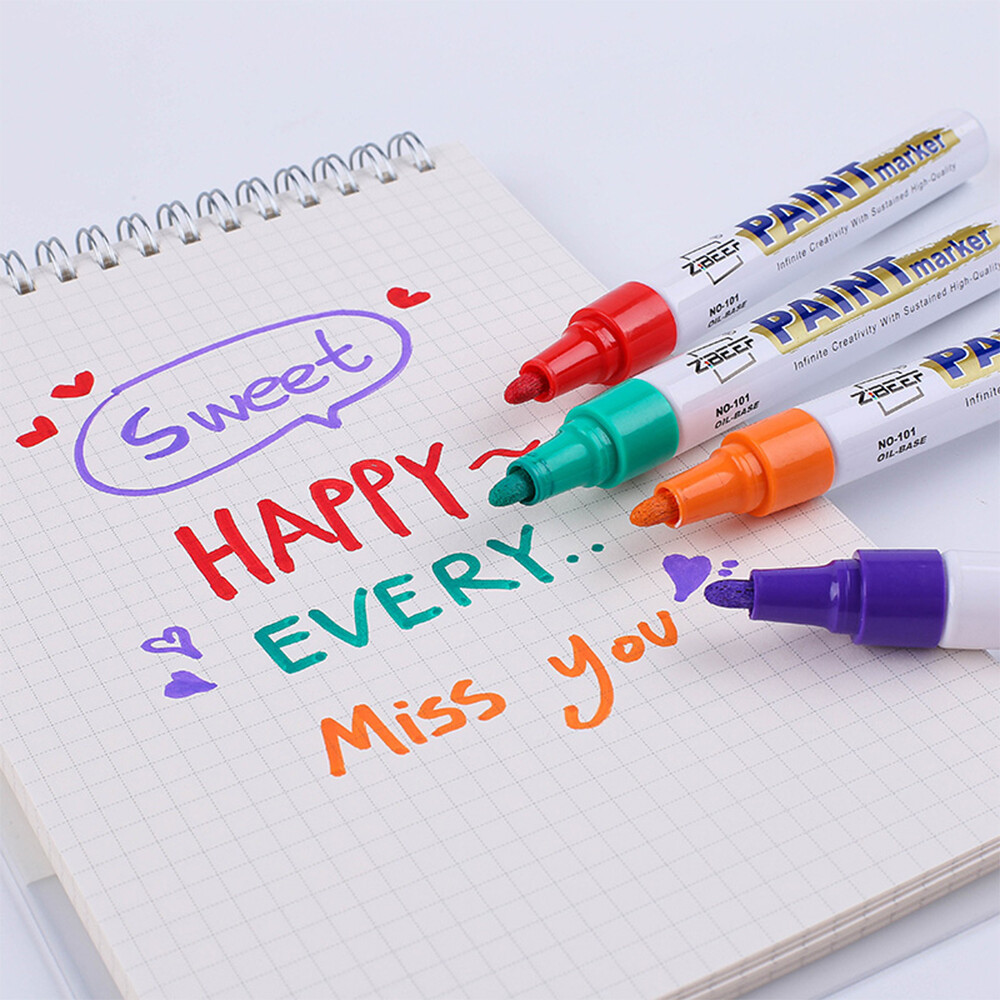 Sweet
HAPPY ~
EVERY..
Miss You
ZiBEEF
PAINT marker
Infinite Creativity With Sustained High-Quality
NO-101
OIL-BASE
ZiBEEF
PAINT marker
Infinite Creativity With Sustained High-Quality
NO-101
OIL-BASE
ZiBEEF
PA
Infinite
NO-101
OIL-BASE